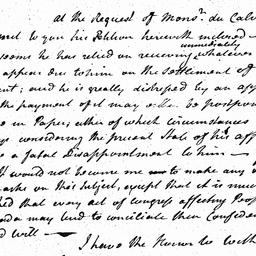 at the Request of Monsr. du Calv
to you his Petition herewith inclosed —
seems he has relied on receiving immediately whatever
appear due to him on the Settlement of
; and he is greatly distressed by an app
the payment of it may be postpon
in Paper, either of which circumstances
considering the present State of his aff
a fatal Disappointment to him —
It would not become me to make any
on this Subject, except that it is much
that every act of Congress affecting Peop
may tend to conciliate their Confiden
will —
I have the Honor to be with